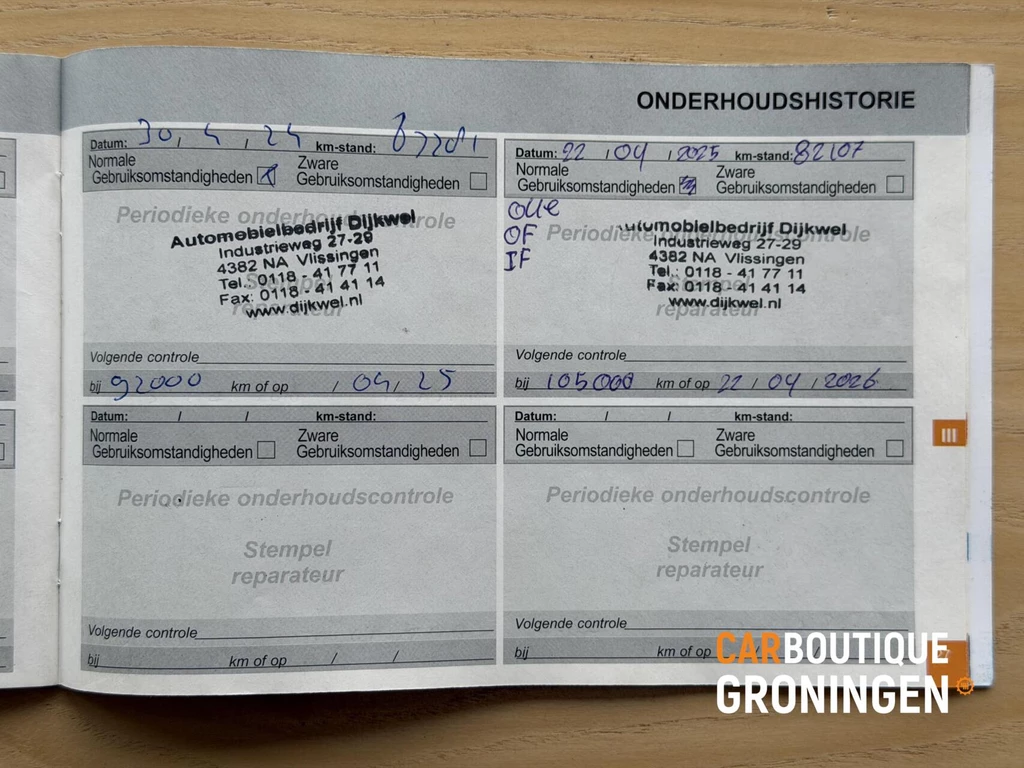 ONDERHOUDSHISTORIE
Datum: 30, 4, 24 km-stand:
Normale
Gebruiksomstandigheden
Zware
Gebruiksomstandigheden
Periodieke onderhoudscontrole
Automobielbedrijf Dijkwel
Industrieweg 27-29
4382 NA Vlissingen
Tel.: 0118 - 41 77 11
Fax: 0118 - 41 41 14
www.dijkwel.nl
Stempel
reparateur
Volgende controle
bij 92000 km of op / 04/ 25
Datum: 22 / 04 / 2025 km-stand: 82107
Normale
Gebruiksomstandigheden
Zware
Gebruiksomstandigheden
Olie
OF
IF
Periodieke onderhoudscontrole
Automobielbedrijf Dijkwel
Industrieweg 27-29
4382 NA Vlissingen
Tel.: 0118 - 41 77 11
Fax: 0118 - 41 41 14
www.dijkwel.nl
Stempel
reparateur
Volgende controle
bij 105000 km of op 22 / 04 / 2026
Datum: / / km-stand:
Normale
Gebruiksomstandigheden
Zware
Gebruiksomstandigheden
Periodieke onderhoudscontrole
Stempel
reparateur
Volgende controle
bij km of op / /
Datum: / / km-stand:
Normale
Gebruiksomstandigheden
Zware
Gebruiksomstandigheden
Periodieke onderhoudscontrole
Stempel
reparateur
Volgende controle
bij km of op
III
CARBOUTIQUE
GRONINGEN